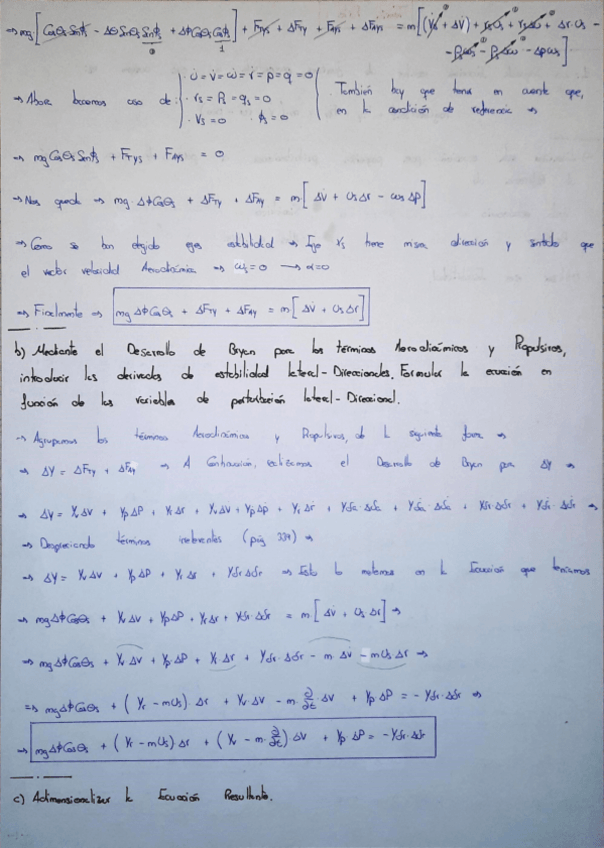 ⇒ mg[CosΘs SenΦs - ΔΘ SenΘs SenΦs + ΔΦ CosΘs CosΦs] + F_Tys + ΔF_Ty + F_Ays + ΔF_Ay = m[(V̇s + ΔV̇) + rsUs + rsΔu + Δr·Us -
- Psωs - PsΔω - ΔPωs]
⇒ Ahora hacemos caso de: { · u̇ = v̇ = ω̇ = ṙ = ṗ = q̇ = 0
· rs = Ps = qs = 0
· Vs = 0 · Φs = 0 } También hay que tener en cuenta que,
en la condición de referencia ⇒
⇒ mg CosΘs SenΦs + F_Tys + F_Ays = 0
⇒ Nos queda ⇒ mg · ΔΦ CosΘs + ΔF_Ty + ΔF_Ay = m[ΔV̇ + UsΔr - ωsΔp]
⇒ Como se han elegido ejes estabilidad ⇒ Eje Xs tiene misma dirección y sentido que
el vector velocidad Aerodinámica ⇒ ωs = 0 → α = 0
⇒ Finalmente ⇒ mgΔΦCosΘs + ΔF_Ty + ΔF_Ay = m[ΔV̇ + UsΔr]
b) Mediante el Desarrollo de Bryan para los términos Aerodinámicos y Propulsivos,
introducir las derivadas de estabilidad lateral-Direccionales. Formular la ecuación en
función de las variables de perturbación lateral-Direccional.
⇒ Agrupamos los términos Aerodinámicos y Propulsivos, de la siguiente forma ⇒
⇒ ΔY = ΔF_Ty + ΔF_Ay ⇒ A Continuación, realizamos el Desarrollo de Bryan para ΔY ⇒
⇒ ΔY = YvΔV + YpΔP + YrΔr + Yv̇ΔV̇ + YṗΔṗ + YṙΔṙ + Yδa·Δδa + Yδ̇a·Δδ̇a + Yδr·Δδr + Yδ̇r·Δδ̇r ⇒
⇒ Despreciando términos irrelevantes (pág 334) ⇒
⇒ ΔY = YvΔV + YpΔP + YrΔr + YδrΔδr ⇒ Esto lo metemos en la Ecuación que teníamos
⇒ mgΔΦCosΘs + YvΔV + YpΔP + YrΔr + YδrΔδr = m[ΔV̇ + UsΔr] ⇒
⇒ mgΔΦCosΘs + YvΔV + YpΔP + YrΔr + Yδr·Δδr - mΔV̇ - mUsΔr ⇒
⇒ mgΔΦCosΘs + (Yr - mUs)Δr + YvΔV - m ∂/∂t ΔV + YpΔP = -YδrΔδr ⇒
⇒ mgΔΦCosΘs + (Yr - mUs)Δr + (Yv - m·∂/∂t)ΔV + YpΔP = -Yδr·Δδr
c) Adimensionalizar la Ecuación Resultante.